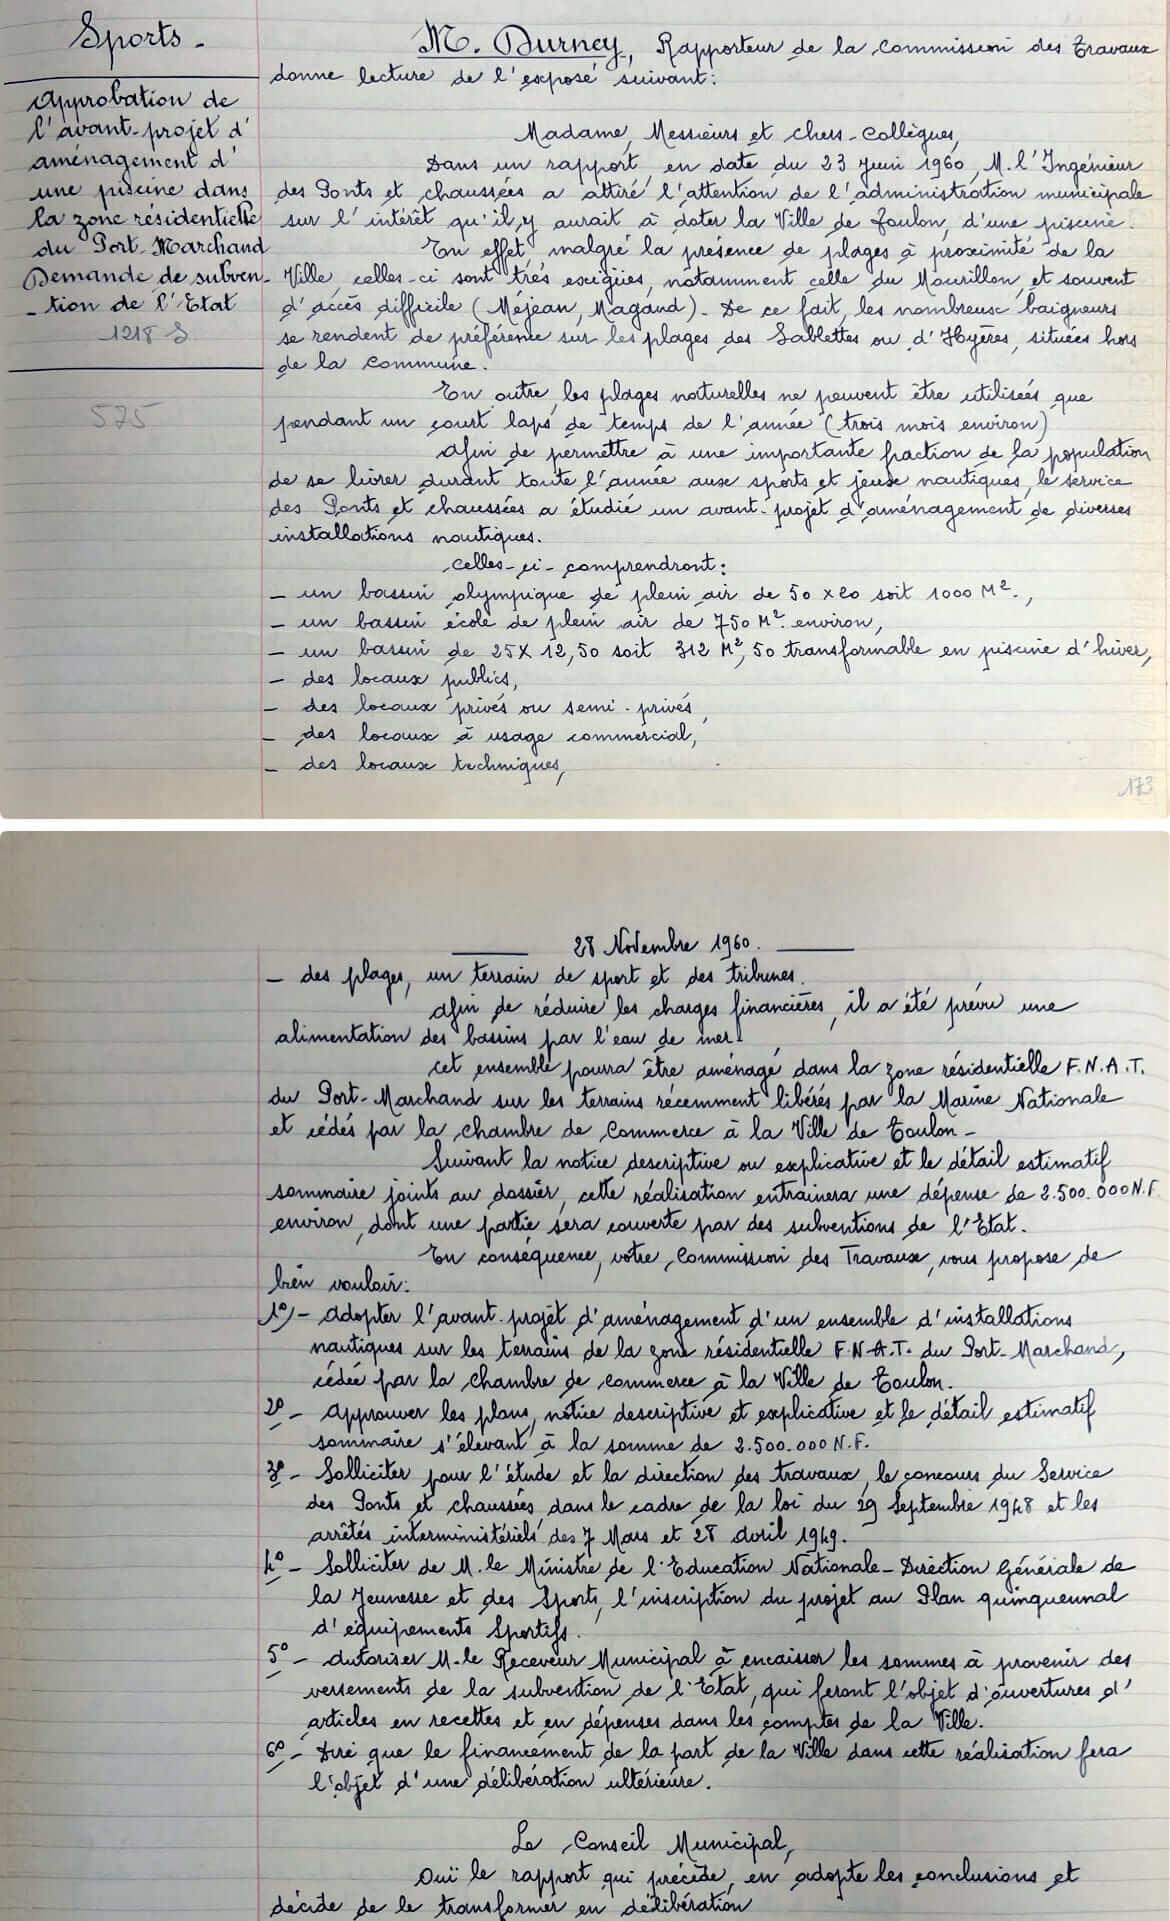 Sports -
Approbation de
l'avant-projet d'
aménagement d'
une piscine dans
la zone résidentielle
du Port Marchand
Demande de subven-
-tion de l'Etat
1218 S
575
M. Durney, Rapporteur de la Commission des Travaux
donne lecture de l'exposé suivant:
Madame, Messieurs et Chers-Collègues,
Dans un rapport, en date du 23 Juin 1960, M. l'Ingénieur
des Ponts et chaussées a attiré l'attention de l'administration municipale
sur l'intérêt qu'il y aurait à doter la Ville de Toulon, d'une piscine.
En effet, malgré la présence de plages à proximité de la
Ville, celles-ci sont très exigües, notamment celle du Mourillon, et souvent
d'accès difficile (Méjean, Magaud). De ce fait, les nombreux baigneurs
se rendent de préférence sur les plages des Sablettes ou d'Hyères, situées hors
de la Commune.
En outre, les plages naturelles ne peuvent être utilisées que
pendant un court laps de temps de l'année (trois mois environ)
Afin de permettre à une importante fraction de la population
de se livrer durant toute l'année aux sports et jeux nautiques, le service
des Ponts et chaussées a étudié un avant-projet d'aménagement de diverses
installations nautiques.
Celles-ci-comprendront:
- un bassin olympique de plein air de 50 x 20 soit 1000 M².,
- un bassin école de plein air de 750 M². environ,
- un bassin de 25 X 12,50 soit 312 M², 50 transformable en piscine d'hiver,
- des locaux publics,
- des locaux privés ou semi-privés,
- des locaux à usage commercial,
- des locaux techniques,
173
28 Novembre 1960.
- des plages, un terrain de sport et des tribunes.
Afin de réduire les charges financières, il a été prévu une
alimentation des bassins par l'eau de mer.
Cet ensemble pourra être aménagé dans la zone résidentielle F.N.A.T.
du Port-Marchand sur les terrains récemment libérés par la Marine Nationale
et cédés par la Chambre de Commerce à la Ville de Toulon -
Suivant la notice descriptive ou explicative et le détail estimatif
sommaire joints au dossier, cette réalisation entrainera une dépense de 2.500.000 N.F.
environ, dont une partie sera couverte par des subventions de l'Etat.
En conséquence, votre Commission des Travaux, vous propose de
bien vouloir:
1°) - Adopter l'avant-projet d'aménagement d'un ensemble d'installations
nautiques sur les terrains de la zone résidentielle F.N.A.T. du Port-Marchand,
cédée par la Chambre de Commerce à la Ville de Toulon.
2° - Approuver les plans, notice descriptive et explicative et le détail estimatif
sommaire s'élevant à la somme de 2.500.000 N.F.
3° - Solliciter pour l'étude et la direction des travaux, le concours du Service
des Ponts et chaussées, dans le cadre de la loi du 29 Septembre 1948 et les
arrêtés interministériels des 7 Mars et 28 avril 1949.
4° - Solliciter de M. le Ministre de l'Education Nationale - Direction Générale de
la Jeunesse et des Sports, l'inscription du projet au Plan quinquennal
d'équipements Sportifs.
5° - Autoriser M. le Receveur Municipal à encaisser les sommes à provenir des
versements de la subvention de l'Etat, qui feront l'objet d'ouvertures d'
articles en recettes et en dépenses dans les comptes de la Ville.
6° - Dire que le financement de la part de la Ville dans cette réalisation fera
l'objet d'une délibération ultérieure.
Le Conseil Municipal,
Ouï le rapport qui précède, en adopte les conclusions et
décide de le transformer en délibération